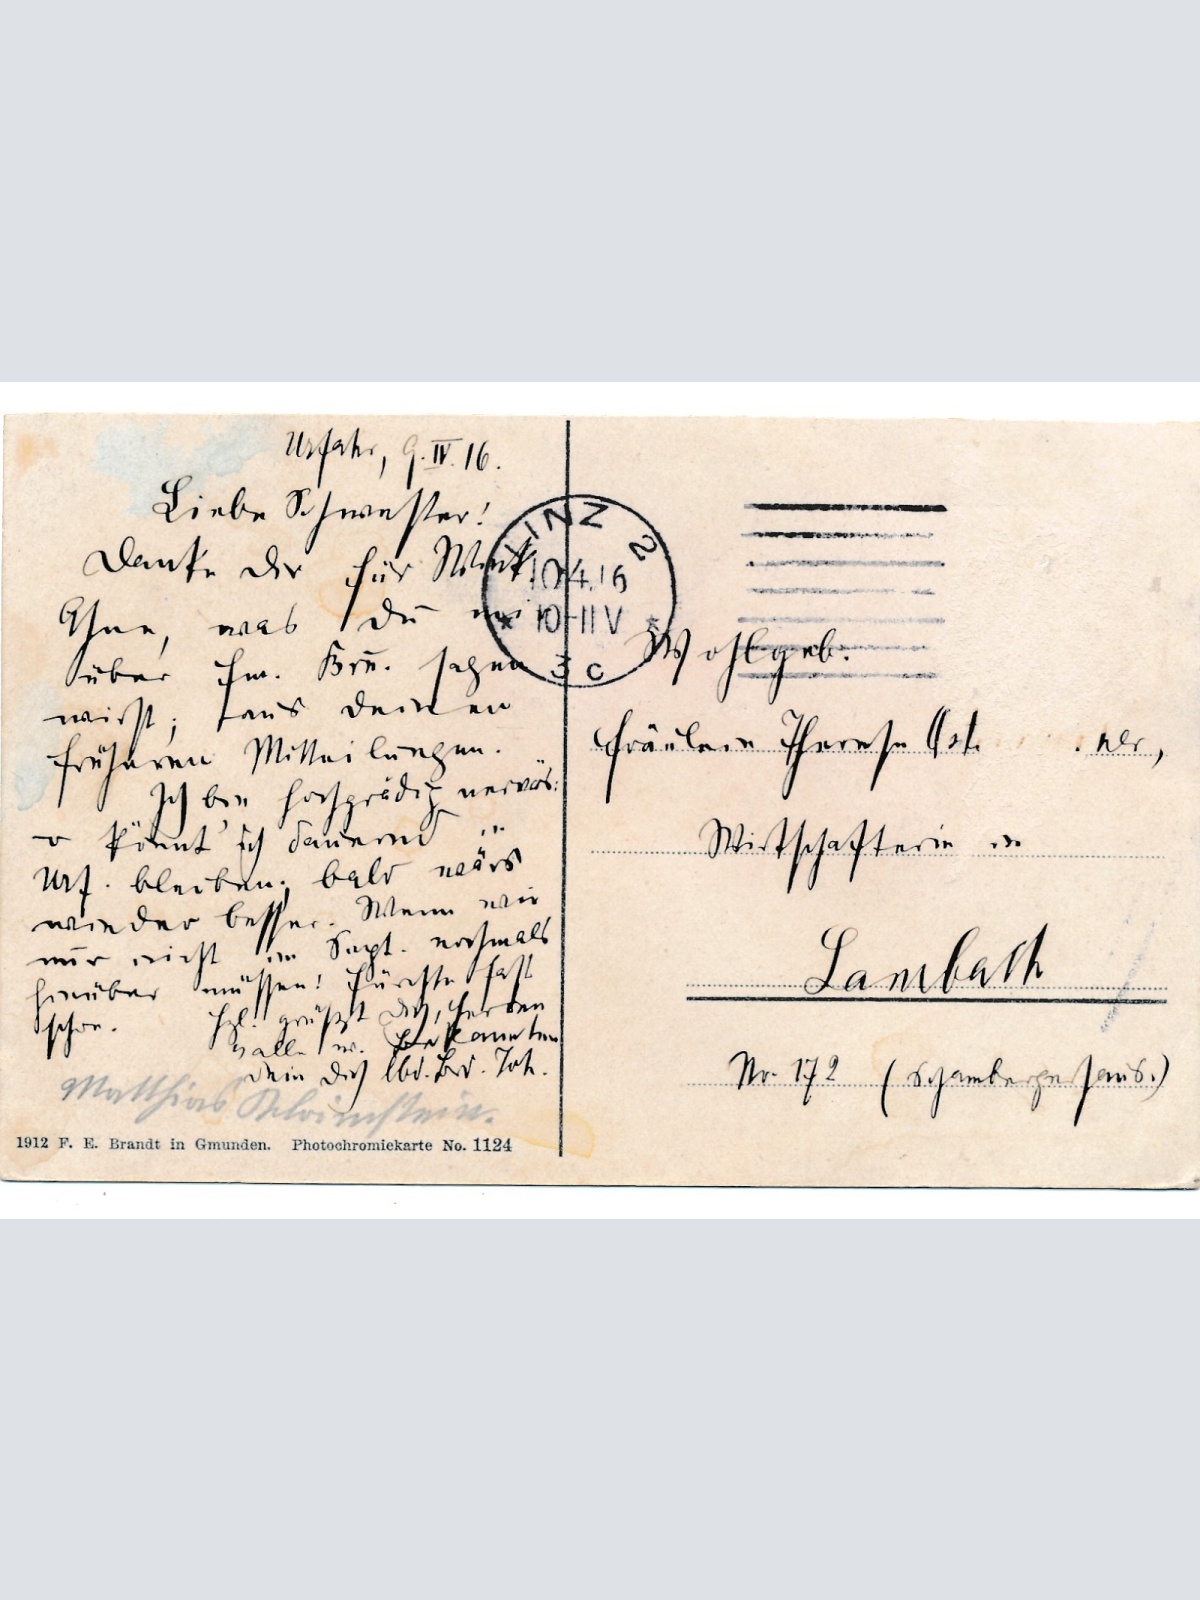 Urfahr, 9. IV. 16.
Liebe Schwester!
Danke Dir für Wink.
Ahne, was Du mir
über Hw. Brü. sagen
wirst; aus Deinen
früheren Mitteilungen.
Ich bin hochgrädig nervös:
o könnt' ich dauernd in
Urf. bleiben; bald wärs
wieder besser. Wenn wir
nur nicht im Sept. nochmals
hinüber müssen! Fürchte fast
schon. Hzl. grüßt Dich,
alle u. Bekannten
Dein Dich lbd. Brd. Joh.
Matthias
1912 F. E. Brandt in Gmunden. Photochromiekarte No. 1124
LINZ 2
10.4.16
10-11V
3c
Wohlgeb.
Fräulein Therese
Wirtschafterin in
Lambach
Nr. 172 (Schambergerhaus.)